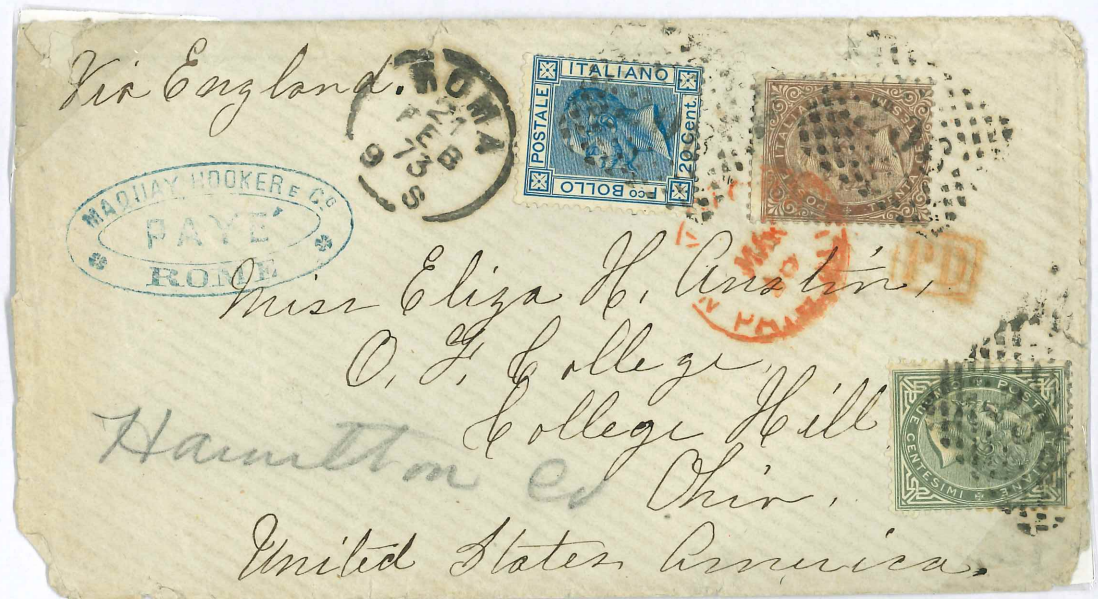 Via England.
ROMA
21
FEB
73
9 S
POSTALE ITALIANO
20 Cent.
Pco BOLLO
MAQUAY HOOKER E Co
PAYÉ
ROME
MAR
PD
Miss Eliza H. Austin,
O. F. College,
College Hill,
Hamilton Co
Ohio,
United States America.
POSTE
CENTESIMI